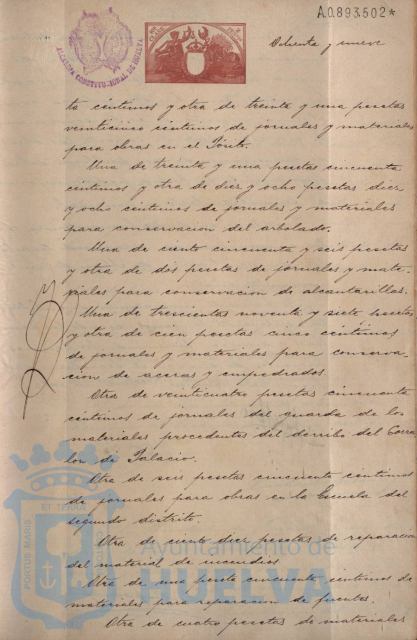 A.0.893.502*
ALCALDIA CONSTITUCIONAL DE HUELVA
Ochenta y nueve
ta céntimos y otra de treinta y una pesetas
veinticinco céntimos de jornales y materiales
para obras en el
Una de treinta y una pesetas cincuenta
centimos y otra de diez y ocho pesetas diez
y ocho centimos de jornales y materiales
para conservacion del arbolado.
Una de ciento cincuenta y seis pesetas
y otra de dos pesetas de jornales y mate-
riales para conservacion de alcantarillas.
Una de trescientas noventa y siete pesetas
y otra de cien pesetas cinco centimos
de jornales y materiales para conserva-
cion de aceras y empedrados.
Otra de veinticuatro pesetas cincuenta
centimos de jornales del guarda de los
materiales procedentes del derribo del Corra
lon de Palacio.
Otra de seis pesetas cincuenta centimos
de jornales para obras en la Escuela del
segundo distrito.
Otra de ciento diez pesetas de reparacion
del material de incendios.
Otra de una peseta cincuenta centimos de
materiales para reparacion de fuentes.
Otra de cuatro pesetas de materiales
PORTUS MARIS
ET TERRAE
Ayuntamiento de
HUELVA